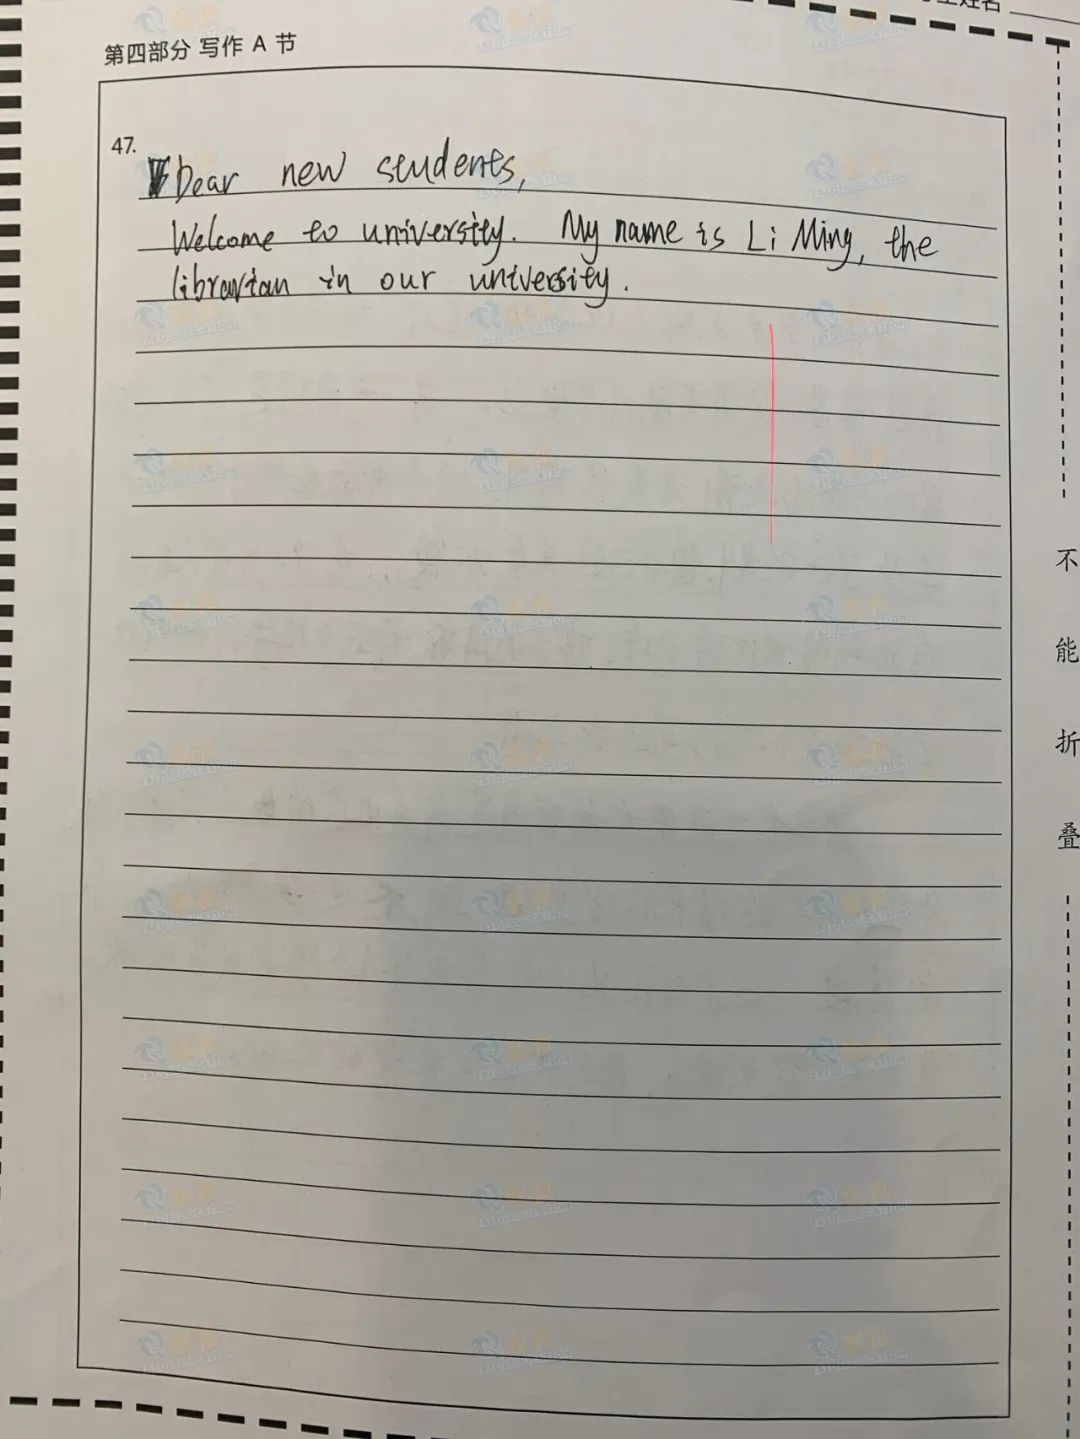 第四部分 写作 A 节
47.
Dear new students,
Welcome to university. My name is Li Ming, the
librarian in our university.
不
能
折
叠